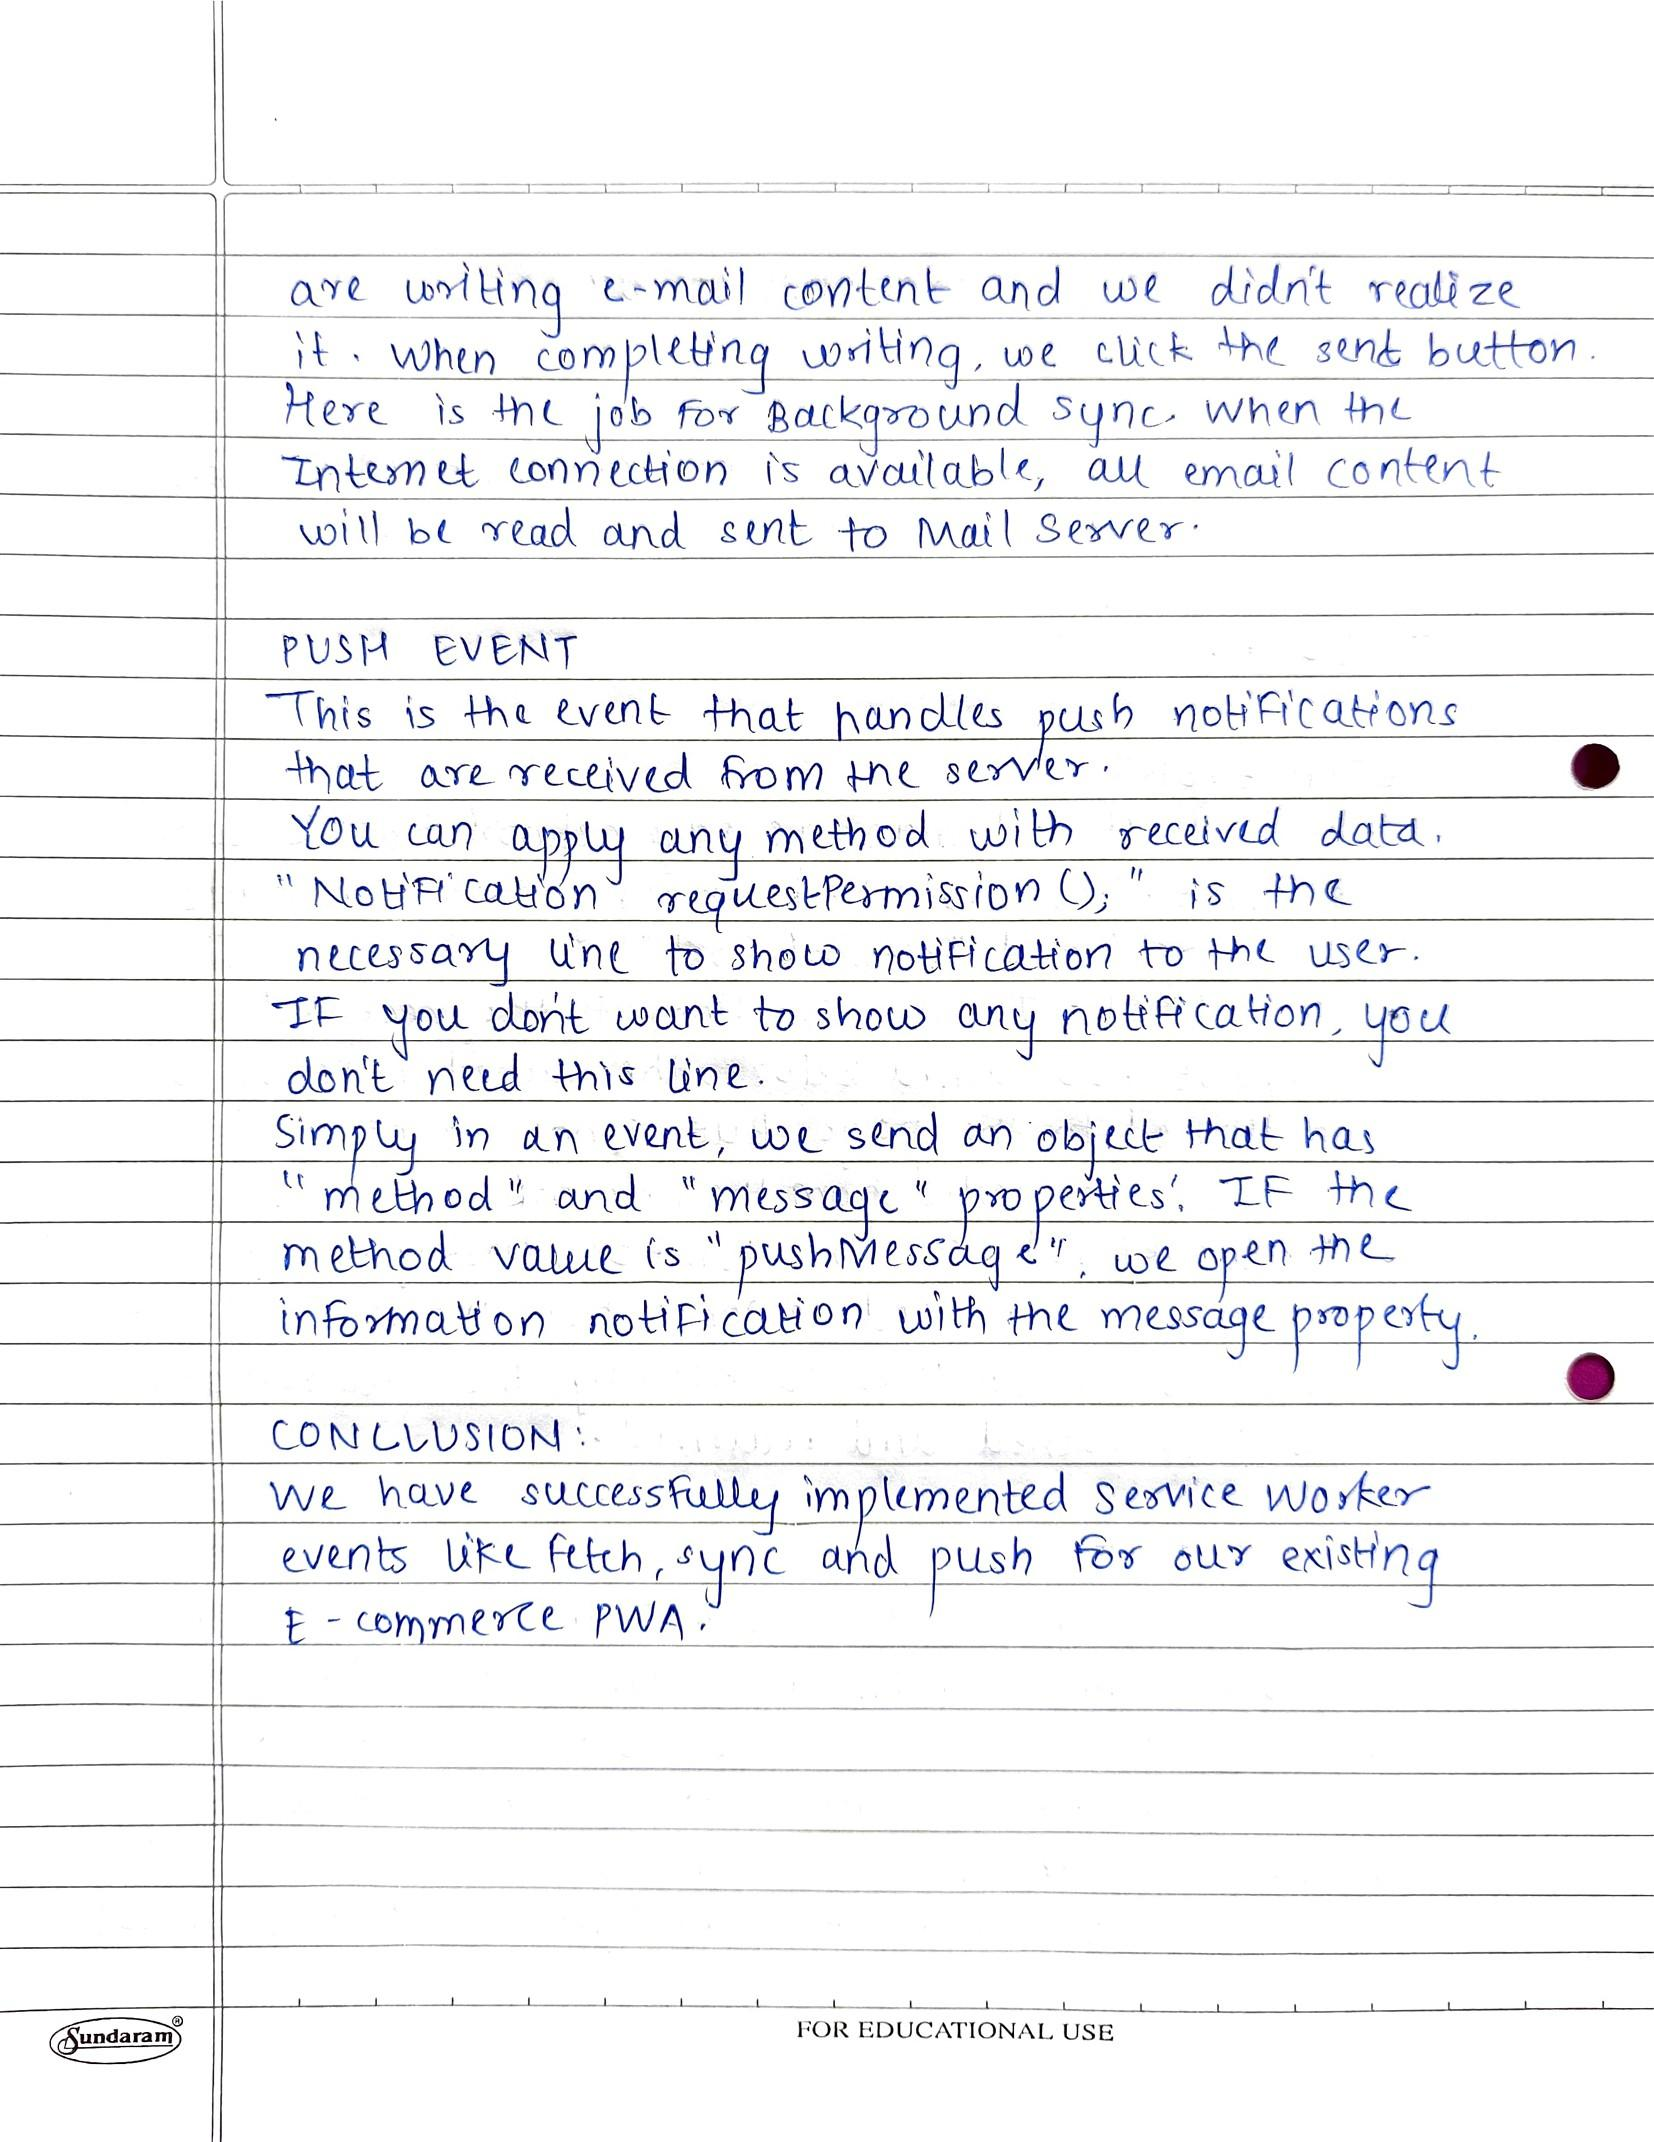 are writing e-mail content and we didn't realize
it. When completing writing, we click the sent button.
Here is the job for Background sync. When the
Internet connection is available, all email content
will be read and sent to Mail Server.
PUSH EVENT
This is the event that handles push notifications
that are received from the server.
You can apply any method with received data.
"Notification requestPermission();" is the
necessary line to show notification to the user.
If you don't want to show any notification, you
don't need this line.
Simply in an event, we send an object that has
"method" and "message" properties. If the
method value is "pushMessage", we open the
information notification with the message property.
CONCLUSION:
We have successfully implemented Service Worker
events like fetch, sync and push for our existing
E-commerce PWA.
Sundaram®
FOR EDUCATIONAL USE